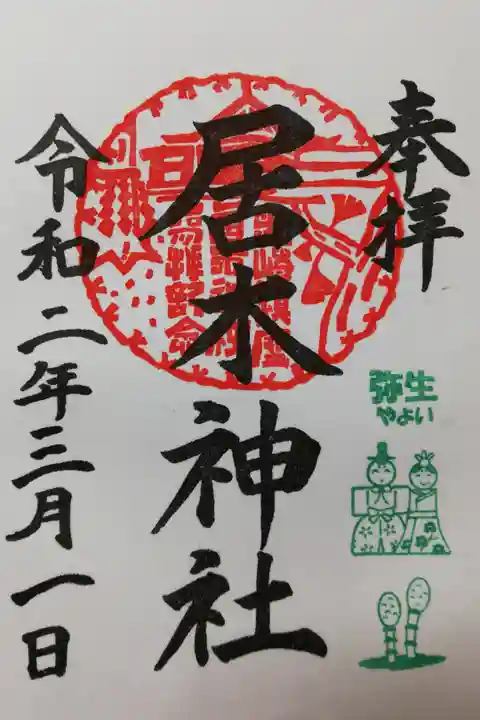 奉拝
居木神社
弥生
やよい
令和二年三月一日